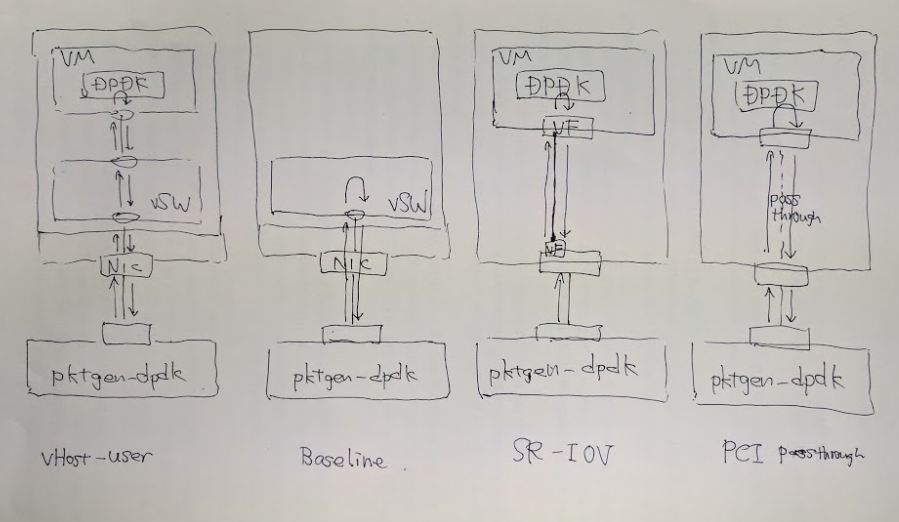 VM
DPDK
vSW
NIC
pktgen-dpdk
vHost-user
vSW
NIC
pktgen-dpdk
Baseline.
VM
DPDK
VF
VF
pktgen-dpdk
SR-IOV
VM
DPDK
pass
through
pktgen-dpdk
PCI passthrough